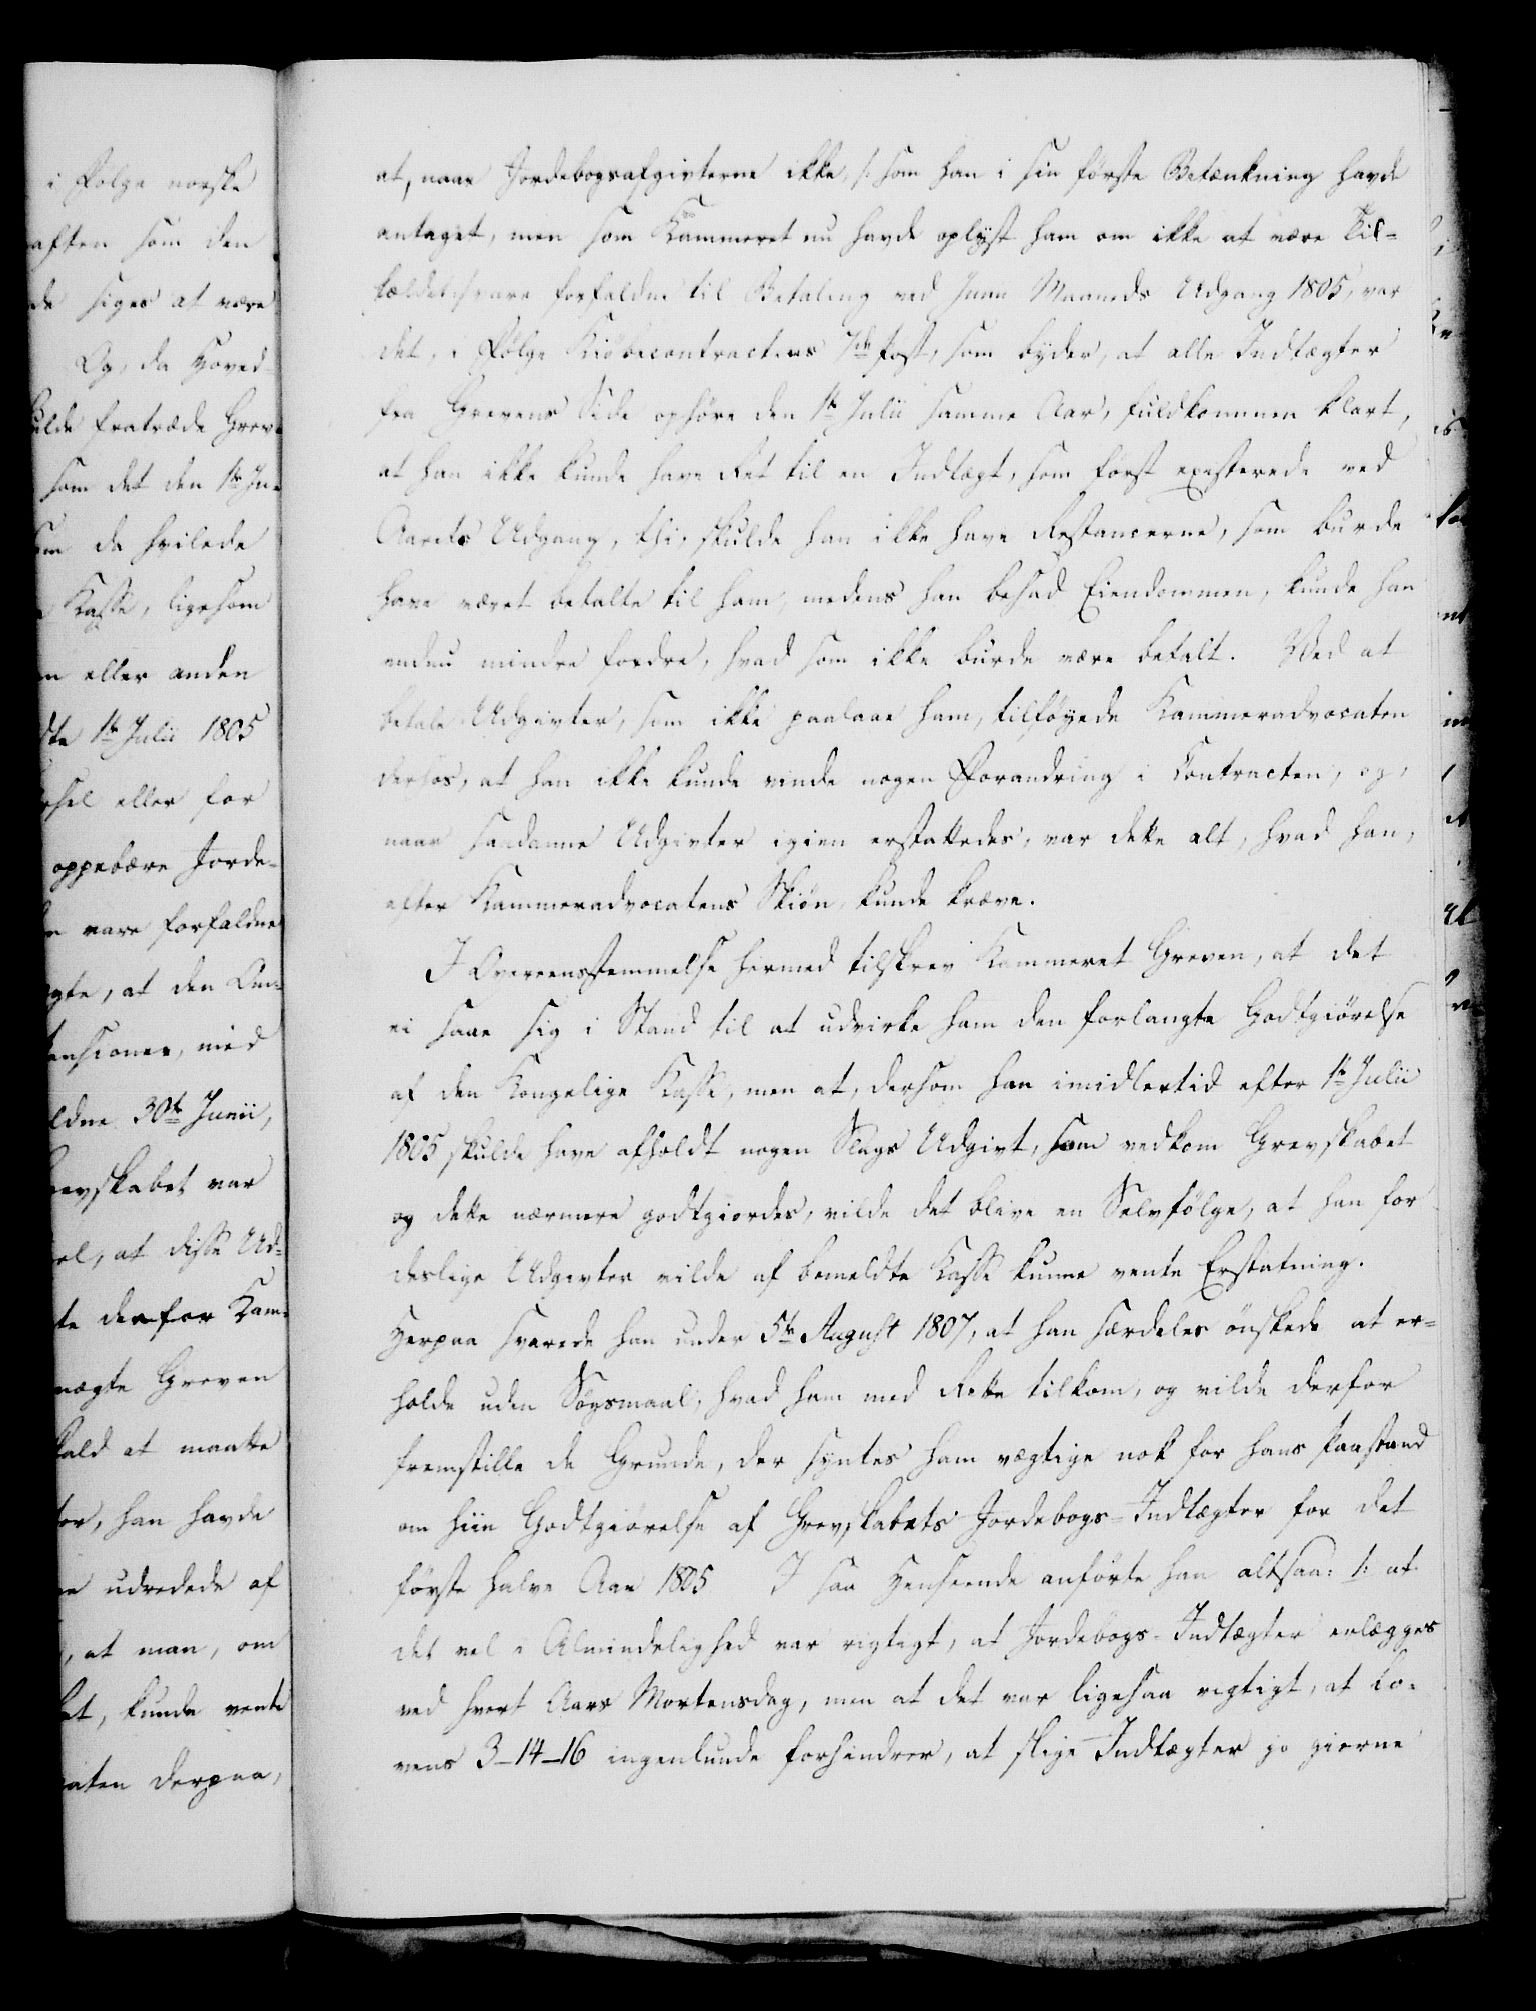 i Følge norske
aften som den
de siges at være
Og, da Hoved-
ulde fratræde Grev-
som det den 1ste Ju-
om da hvilede
Kasse, ligesom
n eller anden
dte 1ste Julii 1805
sel eller for
oppebære Jorde-
vare forfaldne
gte, at den Om-
ensioner, med
ldne 30te Junii,
revskabet var
el, at disse Ud-
te derfor Kam-
nægte Greven
kald at maatte
ter, han havde
udredede af
, at man, om
et, kunde vente
aten derpaa,
at, naar Jordebogsafgivterne ikke, /: som han i sin første Betænkning havde
antaget, men som Kammeret nu havde oplyst ham om ikke at være Til-
fældet :/ vare forfaldne til Betaling ved Junii Maaneds Udgang 1805, var
det, i Følge Kiöbecontractens 7de Post, som byder, at alle Indtægter
fra Grevens Side ophøre den 1ste Julii samme Aar, fuldkommen klart,
at han ikke kunde have Ret til en Indtægt, som først existerede ved
Aarets Udgang, thi, skulde han ikke have Restancerne, som burde
have været betalte til ham medens han besad Eiendommen, kunde han
endnu mindre fordre, hvad som ikke burde være betalt. Ved at
betale Udgivter, som ikke paalaae ham, tilføyede Kammeradvocaten
derhos, at han ikke kunde vinde nogen Forandring i Contracten, og,
naar saadanne Udgivter igien erstattedes, var dette alt, hvad han,
efter Kammeradvocatens Skiön, kunde kræve.
I Overeensstemmelse hermed tilskrev Kammeret Greven, at det
ei saae sig i Stand til at udvirke ham den forlangte Godtgiörelse
af den Kongelige Kasse, men at, dersom han imidlertid efter 1ste Julii
1805 skulde have afholdt nogen Slags Udgivt, som vedkom Grevskabet
og dette nærmere godtgiordes, vilde det blive en Selvfölge, at han for
deslige Udgivter vilde af bemeldte Kasse kunne vente Erstatning.
Herpaa svarede han under 5te August 1807, at han særdeles önskede at er-
holde uden Sögsmaal, hvad ham med Rette tilkom, og vilde derfor
fremstille de Grunde, der syntes ham vægtige nok for hans Paastand
om hiin Godtgiörelse af Grevskabets Jordebogs-Indtægter for det
første halve Aar 1805 I saa Henseende anførte han altsaa: 1: at
det vel i Almindelighed var rigtigt, at Jordebogs-Indtægter erlægges
ved hvert Aars Mortensdag, men at det var ligesaa rigtigt, at Lo-
vens 3-14-16 ingenlunde forhindrer, at slige Indtægter jo gierne